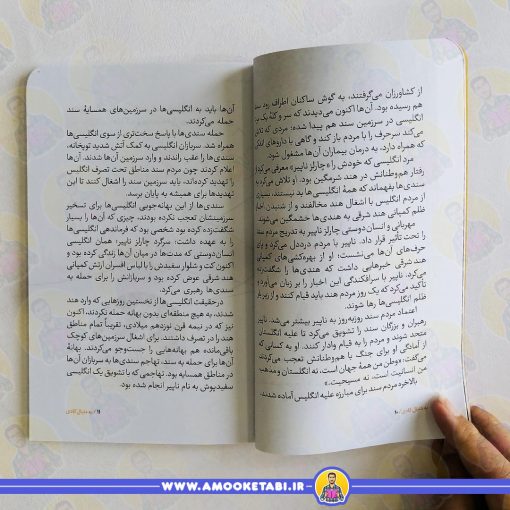 از کشاورزان می‌گرفتند، به گوش ساکنان اطراف رود سند
هم رسیده بود. آن‌ها اکنون می‌دیدند که سر و کلهٔ یک مرد
انگلیسی در سرزمین سند هم پیدا شده؛ مردی که تلاش
می‌کند سرحرف را با مردم باز کند و گاهی با داروهای اندکی
که همراه دارد، به درمان بیماران آن‌ها مشغول شود.
مرد انگلیسی که خودش را «چارلز ناپیر» معرفی می‌کرد از
رفتار هم‌وطنانش در هند شرمگین بود. او تلاش می‌کرد به
سندی‌ها بفهماند که همهٔ انگلیسی‌ها بد نیستند، بسیاری
از مردم انگلیس با اشغال هند مخالفند و از شنیدن اخبار
ظلم کمپانی هند شرقی به هندی‌ها خشمگین می‌شوند.
مهربانی و انسان‌دوستی چارلز ناپیر به تدریج مردم سند
را تحت تأثیر قرار داد. ناپیر با مردم درددل می‌کرد و پای
حرف‌های آن‌ها می‌نشست؛ او از بهره‌کشی‌های کمپانی
هند شرقی خبرهایی داشت که هندی‌ها را شگفت‌زده
می‌کرد. ناپیر با سرافکندگی این اخبار را بر زبان می‌آورد و
تأکید می‌کرد که یک روز مردم هند باید قیام کنند و از زیر بار
ظلم انگلیسی‌ها رها شوند.
اعتماد مردم سند روزبه‌روز به ناپیر بیشتر می‌شد. ناپیر
رهبران و بزرگان سند را تشویق می‌کرد تا علیه انگلستان
متحد شوند و مردم را به قیام وادار کنند. او به کسانی که
از آمادگی او برای جنگ با هم‌وطنانش تعجب می‌کردند
می‌گفت: «وطن من همهٔ جهان است، نه انگلستان و مذهب
من انسانیت است، نه مسیحیت.»
بالاخره مردم سند برای مبارزه علیه انگلیس آماده شدند.
۱۰
آن‌ها باید به انگلیسی‌ها در سرزمین‌های همسایهٔ سند
حمله می‌کردند.
حمله سندی‌ها با پاسخ سخت‌تری از سوی انگلیسی‌ها
همراه شد. سربازان انگلیسی به کمک آتش شدید توپخانه،
سندی‌ها را عقب راندند و وارد سرزمین آن‌ها شدند. آن‌ها
اعلام کردند چون مردم سند مناطق تحت تصرف انگلیس
را تهدید کرده‌اند، باید سرزمین سند را اشغال کنند تا این
تهدیدها برای همیشه به پایان برسد.
سندی‌ها از این بهانه‌جویی انگلیسی‌ها برای تسخیر
سرزمینشان تعجب نکرده بودند، چیزی که آن‌ها را بسیار
شگفت‌زده کرده بود شخصی بود که فرماندهی انگلیسی‌ها
را به عهده داشت؛ سرگرد چارلز ناپیر؛ همان انگلیسی
انسان‌دوستی که مدت‌ها در میان آن‌ها زندگی کرده بود و
اکنون کت و شلوار سفیدش را با لباس افسران ارتش کمپانی
هند شرقی عوض کرده بود و سربازانش را برای حمله به
سندی‌ها رهبری می‌کرد.
درحقیقت انگلیسی‌ها از نخستین روزهایی که وارد هند
شدند، به هیچ منطقه‌ای بدون بهانه حمله نکردند. اکنون
نیز که در نیمه قرن نوزدهم میلادی، تقریباً تمام مناطق
هند را در تصرف داشتند. برای اشغال سرزمین‌های کوچک
باقی‌مانده هم بهانه‌هایی را جست‌وجو می‌کردند. بهانهٔ
آن‌ها برای حمله به سند، تهاجم سندی‌ها به سربازان آن‌ها
در مناطق همسایه بود. تهاجمی که با تشویق یک انگلیسی
سفیدپوش به نام ناپیر انجام شده بود.
۱۱
WWW.AMOOKETABI.IR